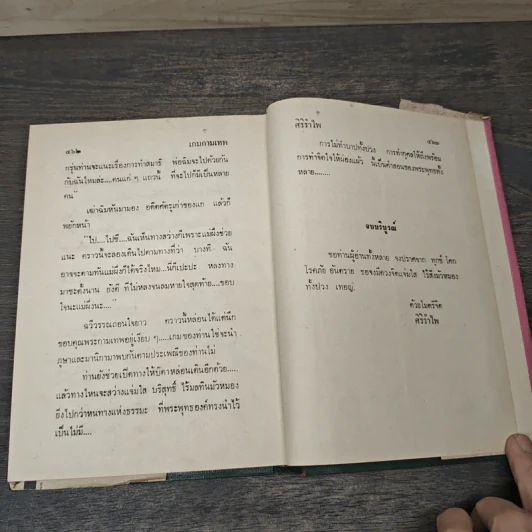 ๔๖๒ เกมกามเทพ
กรุ่นท่านจะแนะเรื่องการทำสมาธิ พ่อฉิมจะไปด้วยกัน
กับฉันไหมล่ะ....คนแก่ ๆ แถวนี้ ที่จะไปก็มีเป็นหลาย
คน"
เฒ่าฉิมหันมามอง อดีตศัตรูเก่าของแก แล้วก็
พยักหน้า
"ไป....ไปซี....ฉันเห็นทางสว่างก็เพราะแม่ผึ้งช่วย
แนะ คราวนี้จะลองเดินไปตามทางที่ว่า บางที ฉัน
อาจจะตามทันแม่ผึ้งก็ได้จริงไหม...นี่ก็เปะปะ หลงทาง
มาซะตั้งนาน ยังดี ที่ไม่หลงจนลมหายใจสุดท้าย....ขอบ
ใจนะแม่ผึ้งนะ...."
ฉวีวรรณถอนใจยาว คราวนี้หล่อนได้แต่นึก
ขอบคุณพระกามเทพอยู่เงียบ ๆ.....เกมของท่านใช่จะนำ
ภูษาและมานิกามาพบกันตามประเพณีของท่านไม่
ท่านยังช่วยเปิดทางให้บิดาหล่อนเดินอีกด้วย.....
แล้วทางไหนจะสว่างแจ่มใส บริสุทธิ์ ไร้มลทินมัวหมอง
ยิ่งไปกว่าหนทางแห่งธรรมะ ที่พระพุทธองค์ทรงนำไว้
เป็นไม่มี....
ศิริรำไพ ๔๖๓
การไม่ทำบาปทั้งปวง การทำกุศลให้ถึงพร้อม
การทำจิตใจให้ผ่องแผ้ว นี้เป็นคำสอนของพระพุทธทั้ง
หลาย........
จบบริบูรณ์
ขอท่านผู้อ่านทั้งหลาย จงปราศจาก ทุกข์ โศก
โรคภัย อันตราย ขอจงมีดวงจิตแจ่มใส ไร้สิ่งมัวหมอง
ทั้งปวง เทอญ.
ด้วยไมตรีจิต
ศิริรำไพ